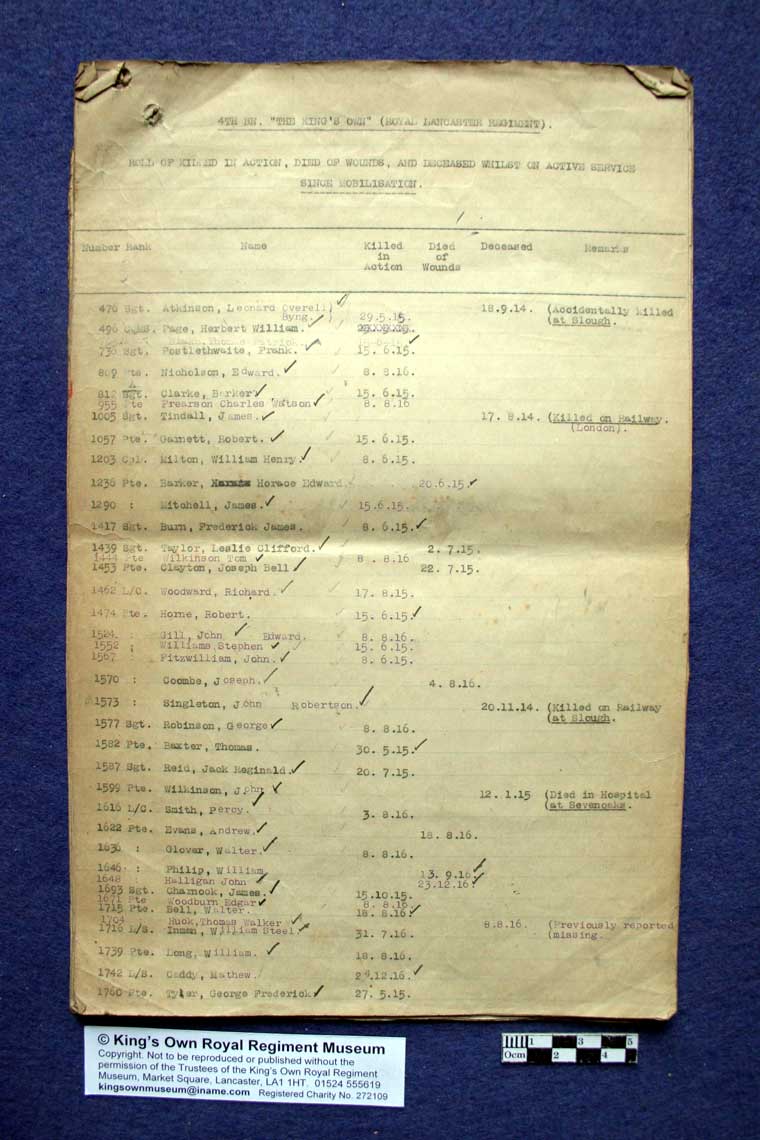 4TH BN. "THE KING'S OWN" (ROYAL LANCASTER REGIMENT).
ROLL OF KILLED IN ACTION, DIED OF WOUNDS, AND DECEASED WHILST ON ACTIVE SERVICE
SINCE MOBILISATION.
Number Rank Name Killed in Action Died of Wounds Deceased Remarks
476 Sgt. Atkinson, Leonard Overell) 18.9.14. (Accidentally killed
Byng. ) 29.5.15. (at Slough.
496 CQMS. Page, Herbert William. ✓
Thomas Patrick.
736 Sgt. Postlethwaite, Frank. ✓ 15. 6.15.
809 Pte. Nicholson, Edward. ✓ 8. 8.16.
812 Sgt. Clarke, Barker ✓ 15. 6.15.
955 Pte Prearson Charles Watson ✓ 8. 8.16
1005 Sgt. Tindall, James. ✓ 17. 8.14. (Killed on Railway.
(London).
1057 Pte. Garnett, Robert. ✓ 15. 6.15.
1203 Cpl. Milton, William Henry. ✓ 8. 6.15.
1236 Pte. Barker, Horace Edward. 20.6.15. ✓
1290 : Mitchell, James. ✓ 15.6.15.
1417 Sgt. Burn, Frederick James. 8. 6.15. ✓
1439 Sgt. Taylor, Leslie Clifford. ✓ 2. 7.15.
1444 Pte Wilkinson Tom ✓ 8 . 8.16
1453 Pte. Clayton, Joseph Bell ✓ 22. 7.15.
1462 L/C. Woodward, Richard. ✓ 17. 8.15.
1474 Pte. Horne, Robert. 15. 6.15. ✓
1524. : Gill, John ✓ Edward. 8. 8.16.
1552 ; Williams Stephen ✓ 15. 6.15.
1567 : Fitzwilliam, John. ✓ 8. 6.15.
1570 : Coombe, Joseph. ✓ 4. 8.16.
1573 : Singleton, John Robertson. ✓ 20.11.14. (Killed on Railway
(at Slough.
1577 Sgt. Robinson, George ✓ 8. 8.16.
1582 Pte. Baxter, Thomas. 30. 5.15. ✓
1587 Sgt. Reid, Jack Reginald. ✓ 20. 7.15.
1599 Pte. Wilkinson, John ✓ 12. 1.15 (Died in Hospital
(at Sevenoaks.
1616 L/C. Smith, Percy. ✓ 3. 8.16.
1622 Pte. Evans, Andrew. ✓ 18. 8.16.
1636 : Glover, Walter. ✓ 8. 8.16.
1646 : Philip, William 13. 9.16 ✓
1648 : Halligan John ✓ 23.12.16. ✓
1693 Sgt. Charnock, James. ✓ 15.10.15.
1671 Pte Woodburn Edgar ✓ 8. 8.16.
1715 Pte. Bell, Walter. 18. 8.16. ✓
1704 Huck, Thomas Walker ✓ 8.8.16. (Previously reported
1716 L/S. Inman, William Steel. ✓ 31. 7.16. (missing.
1739 Pte. Long, William. ✓ 18. 8.16.
1742 L/S. Caddy, Mathew. .12.16. ✓
1760 Pte. Tyler, George Frederick ✓ 27. 5.15.
© King's Own Royal Regiment Museum
Copyright. Not to be reproduced or published without the
permission of the Trustees of the King's Own Royal Regiment
Museum, Market Square, Lancaster, LA1 1HT. 01524 555619
kingsownmuseum@iname.com Registered Charity No. 272109
1 3 5
0cm 2 4